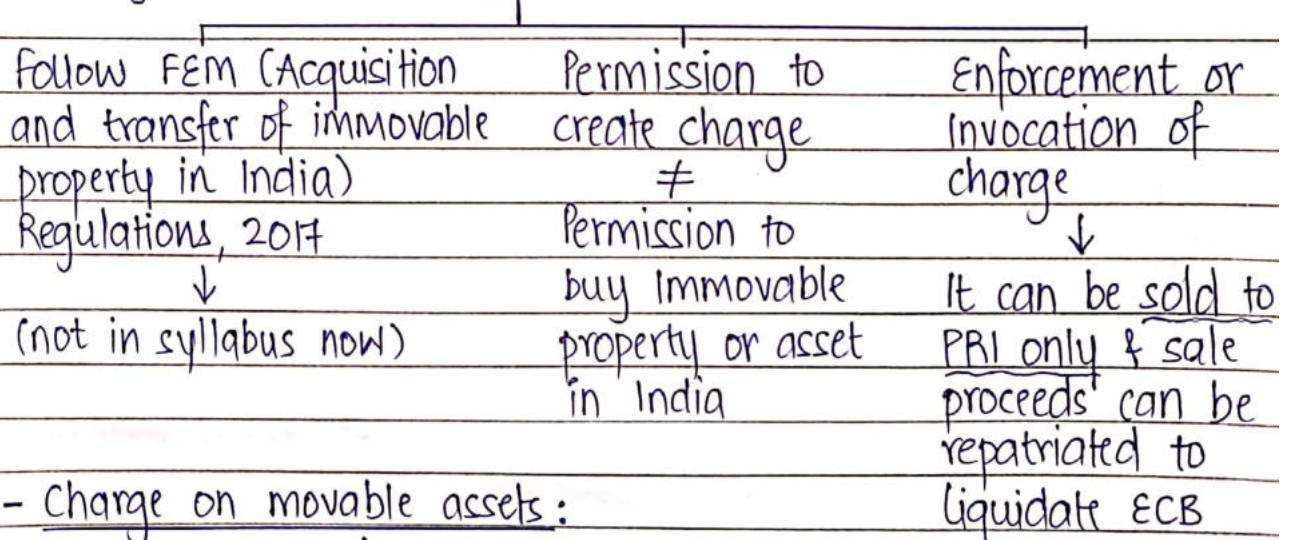 Follow FEM (Acquisition
and transfer of immovable
property in India)
Regulations, 2017
↓
(not in syllabus now)
Permission to
create charge
≠
Permission to
buy Immovable
property or asset
in India
Enforcement or
Invocation of
charge
↓
It can be sold to
PRI only & sale
proceeds can be
repatriated to
liquidate ECB
- Charge on movable assets: